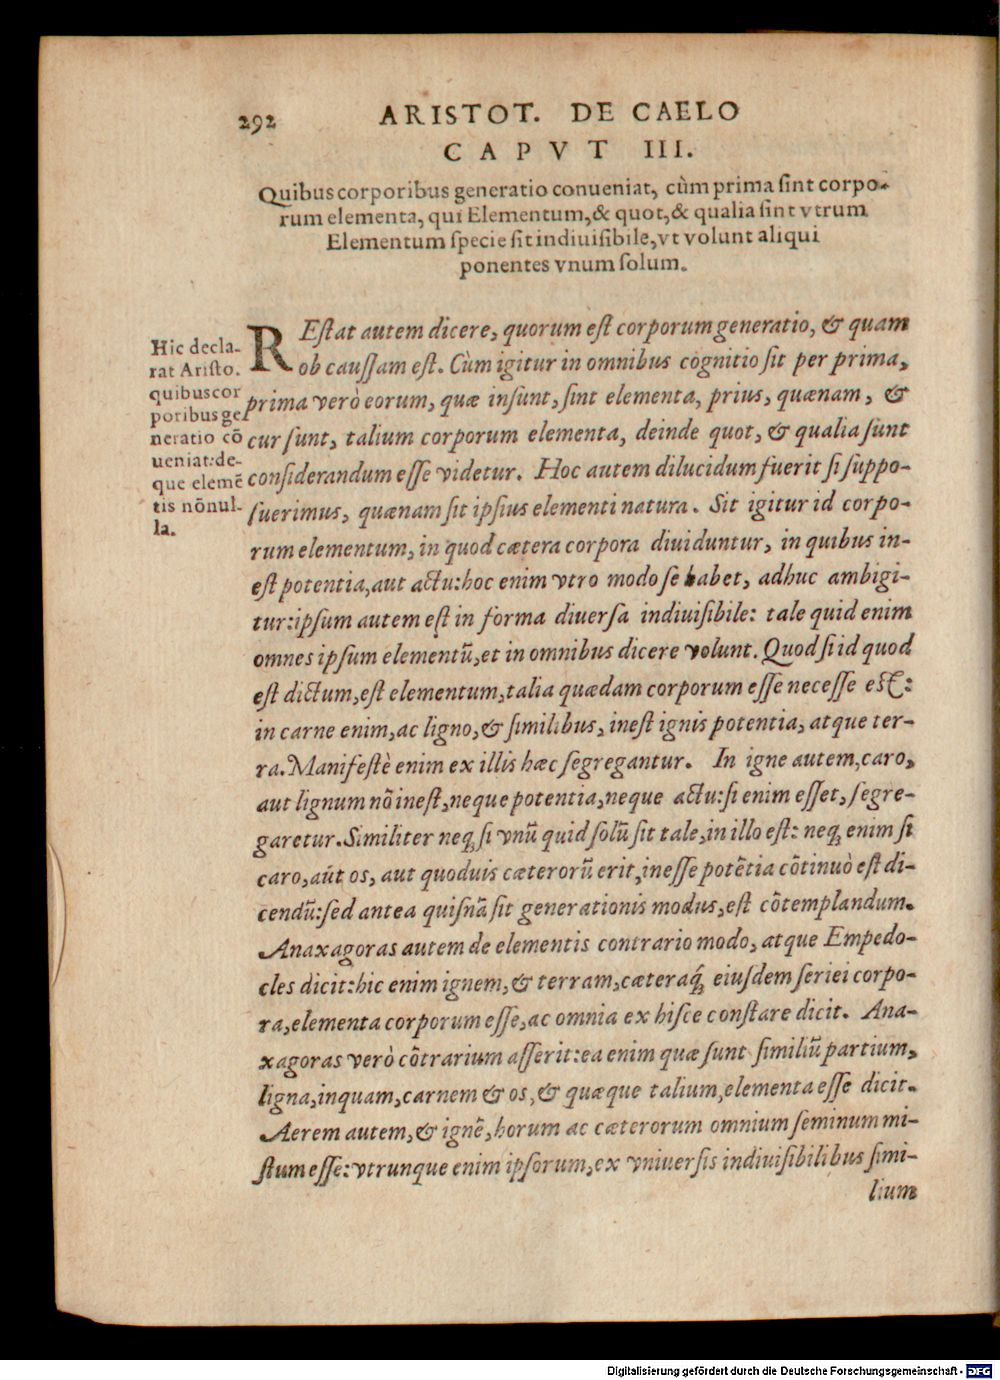 292
ARISTOT. DE CAELO
CAPVT III.
Quibus corporibus generatio conueniat, cùm prima ſint corpo-
rum elementa, qui Elementum, & quot, & qualia ſint vtrum
Elementum ſpecie ſit indiuiſibile, vt volunt aliqui
ponentes vnum ſolum.
Hic decla-
rat Ariſto.
quibus cor
poribus ge
neratio cō
ueniat: de-
que elemē
tis nōnul-
la.
REſtat autem dicere, quorum eſt corporum generatio, & quam
ob cauſſam eſt. Cùm igitur in omnibus cognitio ſit per prima,
prima verò eorum, quæ inſunt, ſint elementa, prius, quænam, &
cur ſunt, talium corporum elementa, deinde quot, & qualia ſunt
conſiderandum eſſe videtur. Hoc autem dilucidum fuerit ſi ſuppo-
ſuerimus, quænam ſit ipſius elementi natura. Sit igitur id corpo-
rum elementum, in quod cætera corpora diuiduntur, in quibus in-
eſt potentia, aut actu: hoc enim vtro modo ſe habet, adhuc ambigi-
tur: ipſum autem eſt in forma diuerſa indiuiſibile: tale quid enim
omnes ipſum elementū, et in omnibus dicere volunt. Quod ſi id quod
eſt dictum, eſt elementum, talia quædam corporum eſſe neceſſe eſt:
in carne enim, ac ligno, & ſimilibus, ineſt ignis potentia, atque ter-
ra. Manifeſtè enim ex illis hæc ſegregantur. In igne autem, caro,
aut lignum nō ineſt, neque potentia, neque actu: ſi enim eſſet, ſegre-
garetur. Similiter neq; ſi vnū quid ſolū ſit tale, in illo eſt: neq; enim ſi
caro, aut os, aut quoduis cæterorū erit, ineſſe potētia cōtinuò eſt di-
cendū: ſed antea quiſnā ſit generationis modus, eſt cōtemplandum.
Anaxagoras autem de elementis contrario modo, atque Empedo-
cles dicit: hic enim ignem, & terram, cæteraq́; eiuſdem ſeriei corpo-
ra, elementa corporum eſſe, ac omnia ex hiſce conſtare dicit. Ana-
xagoras verò cōtrarium aſſerit: ea enim quæ ſunt ſimiliū partium,
ligna, inquam, carnem & os, & quæque talium, elementa eſſe dicit.
Aerem autem, & ignē, horum ac cæterorum omnium ſeminum mi-
ſtum eſſe: vtrunque enim ipſorum, ex vniuerſis indiuiſibilibus ſimi-
lium
Digitalisierung gefördert durch die Deutsche Forschungsgemeinschaft - DFG